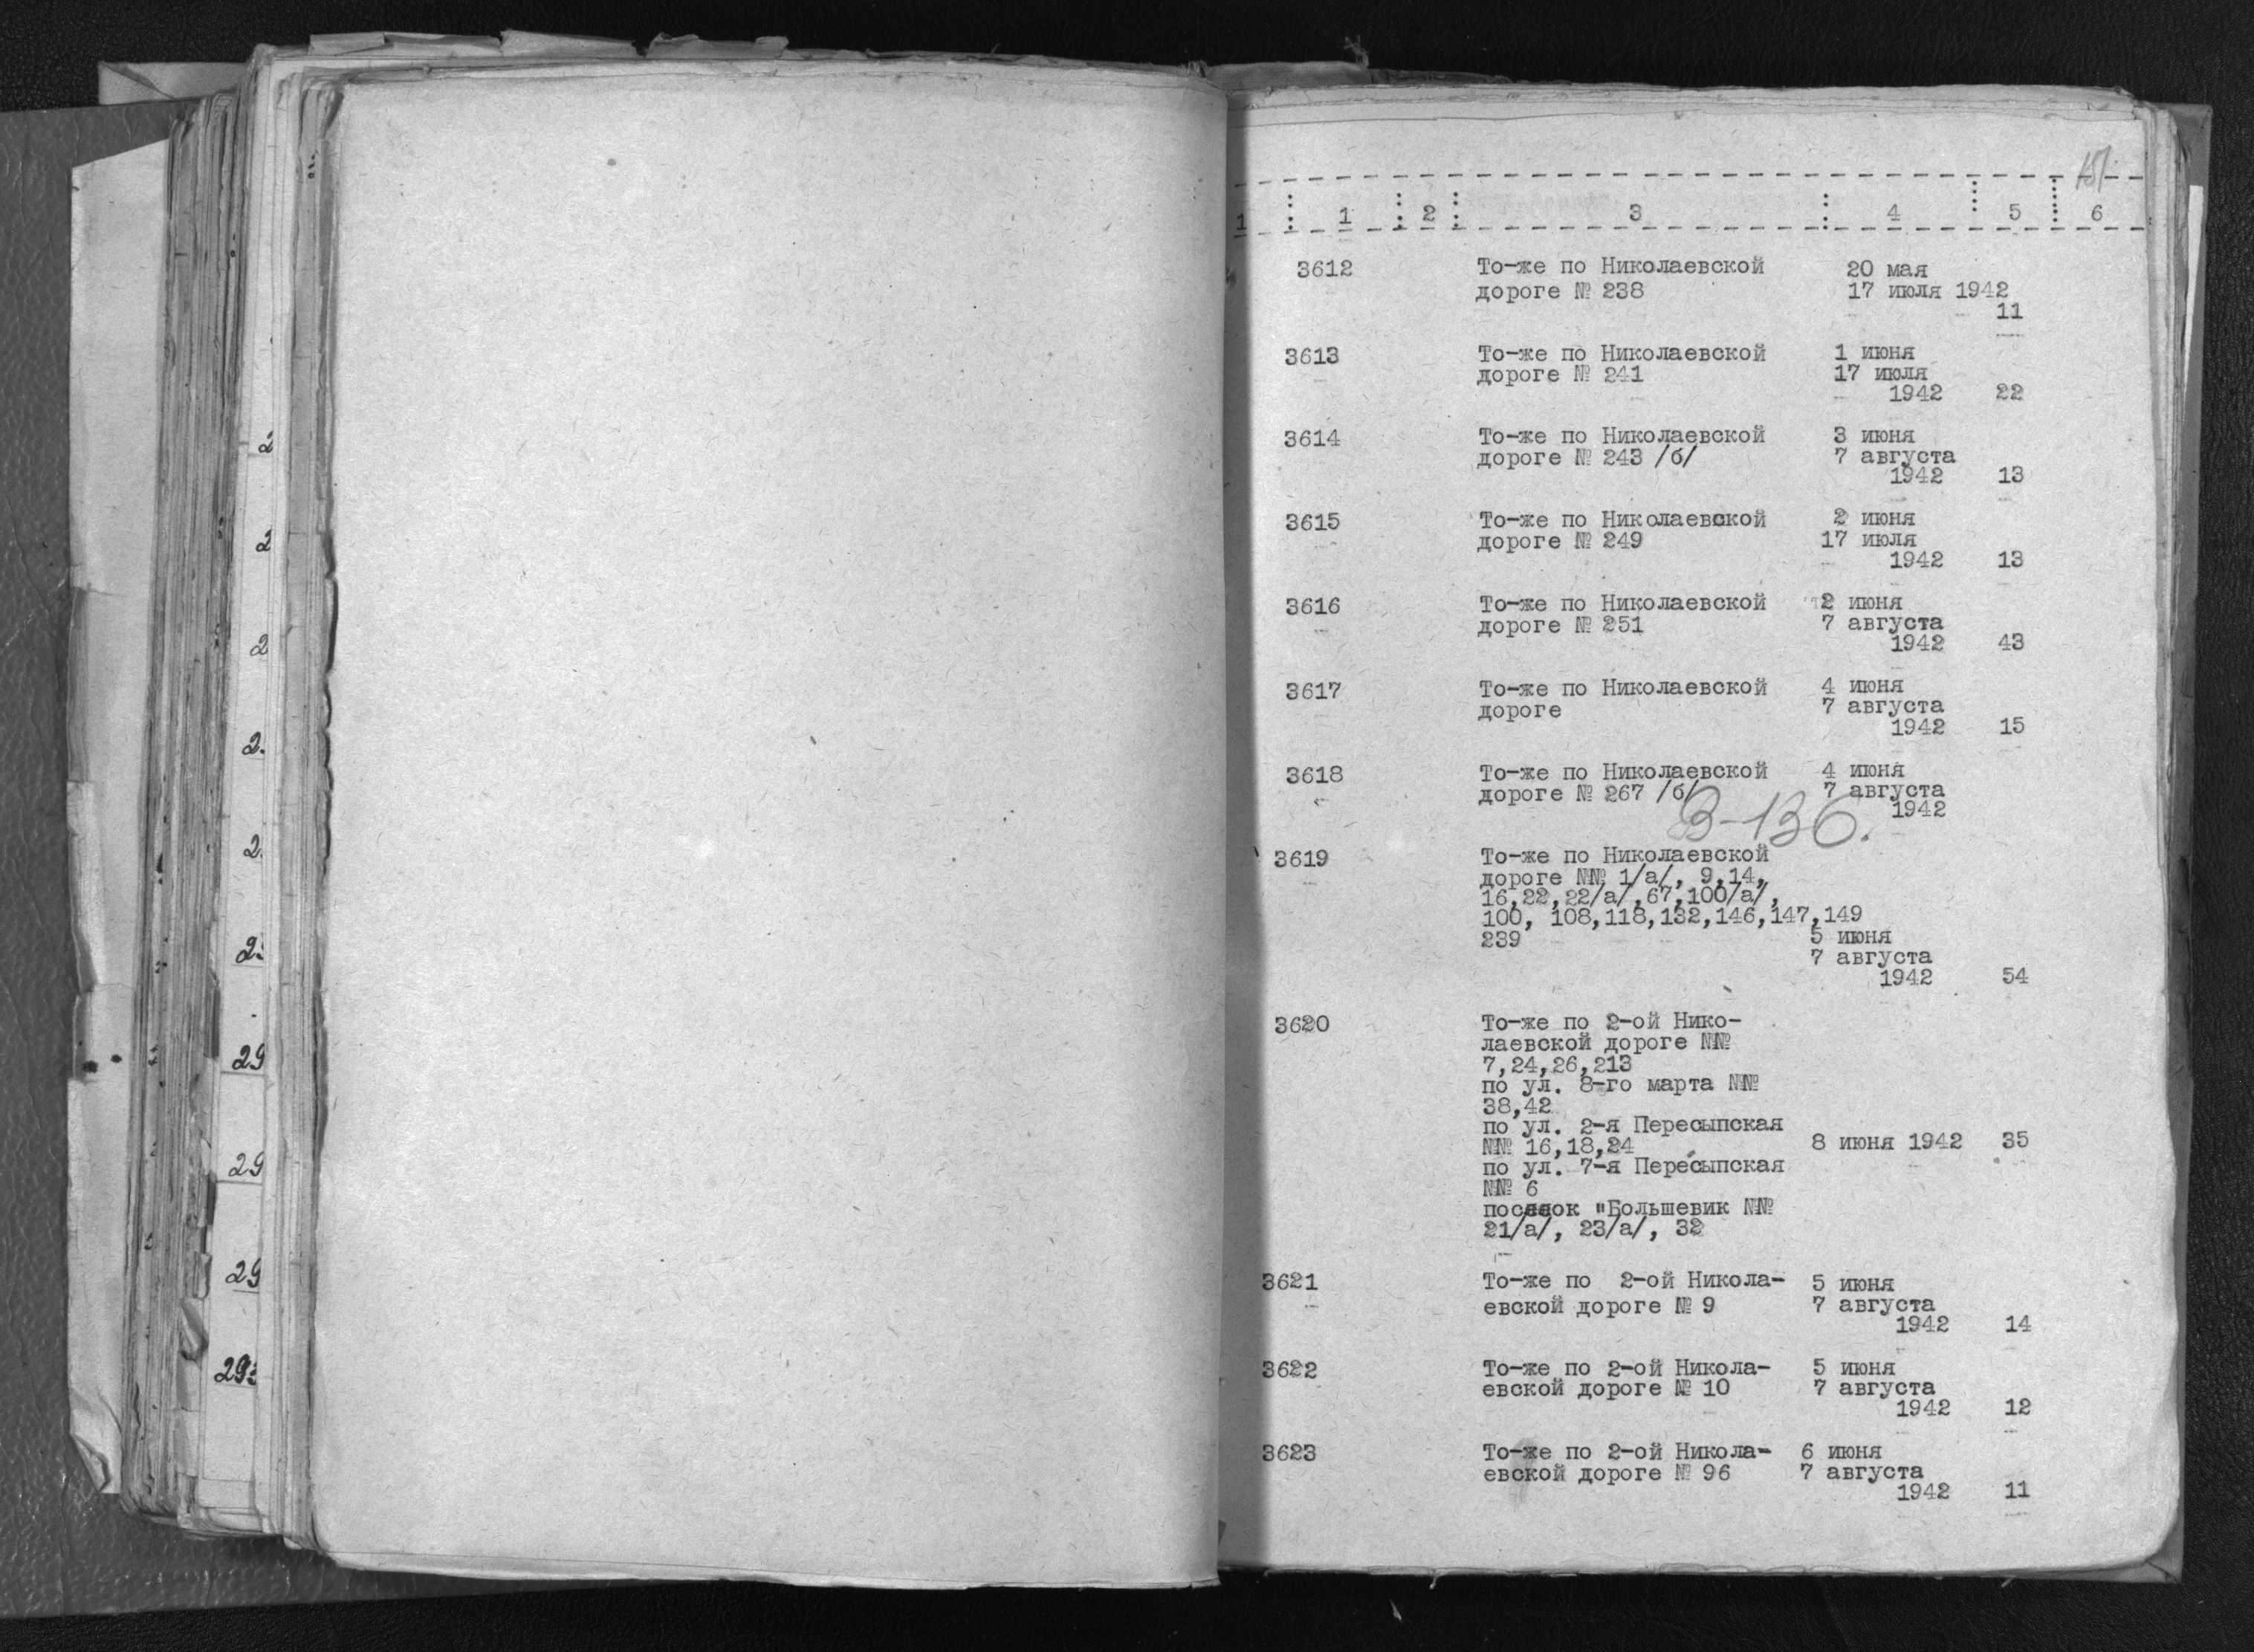 2
2
2
2
2
2
29
29
29
293
151
1 1 2 3 4 5 6
3612 То-же по Николаевской 20 мая
дороге № 238 17 июля 1942
11
3613 То-же по Николаевской 1 июня
дороге № 241 17 июля
1942 22
3614 То-же по Николаевской 3 июня
дороге № 243 /б/ 7 августа
1942 13
3615 То-же по Николаевской 2 июня
дороге № 249 17 июля
1942 13
3616 То-же по Николаевской 2 июня
дороге № 251 7 августа
1942 43
3617 То-же по Николаевской 4 июня
дороге 7 августа
1942 15
3618 То-же по Николаевской 4 июня
дороге № 267 /б/ 7 августа
1942
В-136.
3619 То-же по Николаевской
дороге №№ 1/а/, 9,14,
16,22,22/а/,67,100/а/,
100, 108,118,132,146,147,149
239 5 июня
7 августа
1942 54
3620 То-же по 2-ой Нико-
лаевской дороге №№
7,24,26,213
по ул. 8-го марта №№
38,42
по ул. 2-я Пересыпская
№№ 16,18,24 8 июня 1942 35
по ул. 7-я Пересыпская
№№ 6
поселок "Большевик №№
21/а/, 23/а/, 32
3621 То-же по 2-ой Никола- 5 июня
евской дороге № 9 7 августа
1942 14
3622 То-же по 2-ой Никола- 5 июня
евской дороге № 10 7 августа
1942 12
3623 То-же по 2-ой Никола- 6 июня
евской дороге № 96 7 августа
1942 11